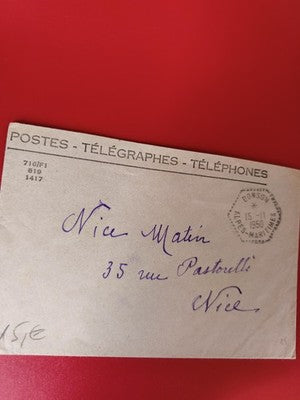 POSTES - TÉLÉGRAPHES - TÉLÉPHONES
710/F1
819
1417
BONSON
15-11
1950
ALPES-MARITIMES
Nice Matin
35 rue Pastorelli
Nice.
15,€